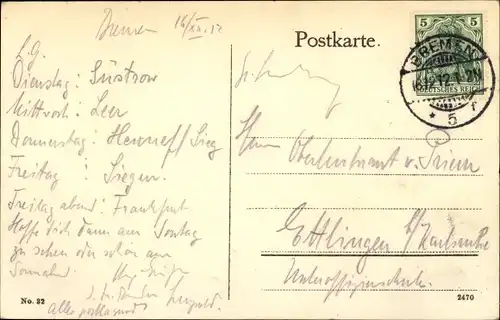 Bremen 16/XII.12
L. G.
Dienstag: Güstrow
Mittwoch: Leer
Donnerstag: Hennef/Sieg
Freitag: Siegen
Freitag abend: Frankfurt
Hoffe dich dann am Sonntag
zu sehen oder schon am
Sonnabend.
Alles postlagernd
No. 82
Postkarte.
5 5
DEUTSCHES REICH
BREMEN
12.12
* 5 r
Herrn Oberleutnant von
Ettlingen b/Karlsruhe
Unteroffizierschule.
2470